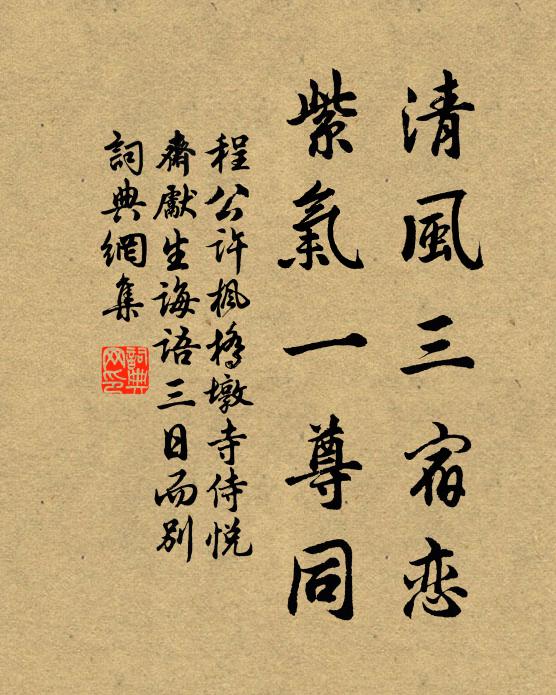 清風三宿恋
紫氣一尊同
程公许枫橋墩寺侍悦
齋獻生誨语三日而别
詞典網集
詞典网印